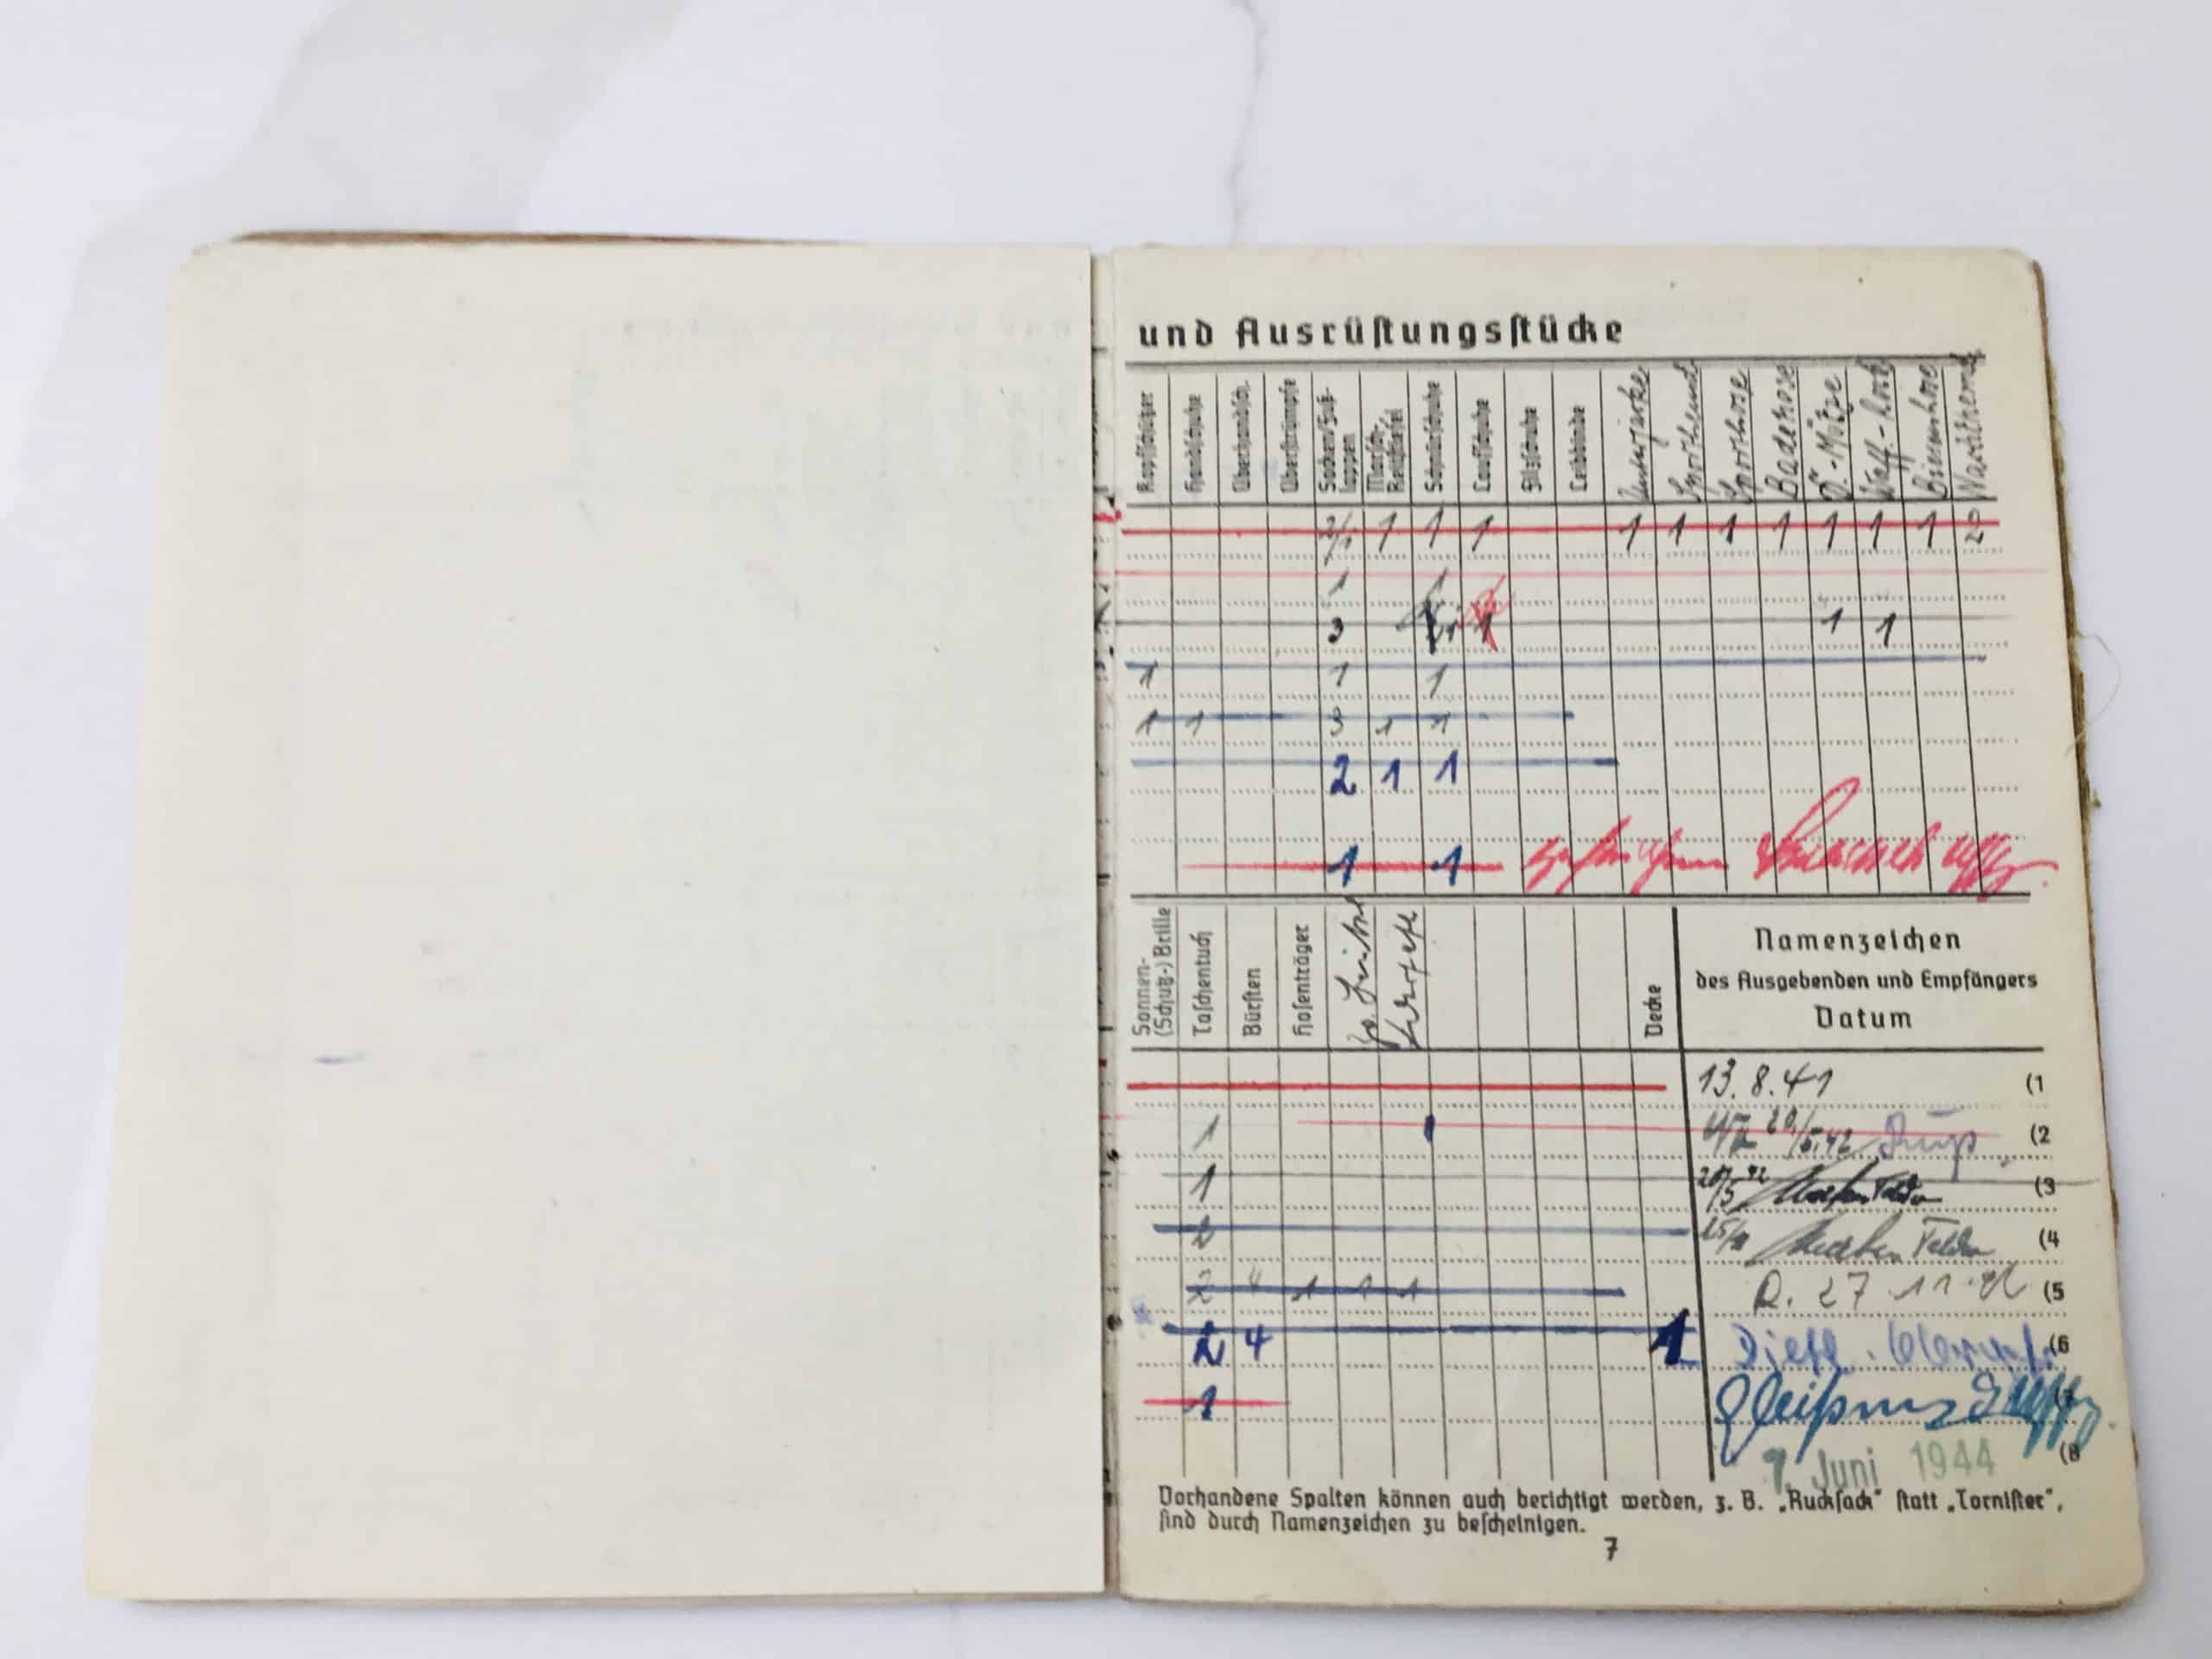 und Ausrüstungsstücke
Kopfschützer Handschuhe Überhandsch. Überstrümpfe Socken/Fuß-lappen Marsch-Reitstiefel Schnürschuhe Laufschuhe Filzschuhe Leibbinde Unterjacke Sporthemd Sporthose Badehose D.-Mütze Waff.-Rock
2/1 1 1 1 1 1 1 1 1 1 1 2
1 1
3 1 1 1 1
1 1 1
1 1 3 1 1
2 1 1
1 1
Sonnen-(Schutz-) Brille Taschentuch Bürsten Hosenträger Decke
Namenzeichen
des Ausgebenden und Empfängers
Datum
13.8.41 (1
1 (2
1 (3
2 (4
2 4 1 1 1 27.11. (5
2 4 1 (6
1
7. Juni 1944 (8
Vorhandene Spalten können auch berichtigt werden, z. B. „Rucksack" statt „Tornister",
sind durch Namenzeichen zu bescheinigen.
7